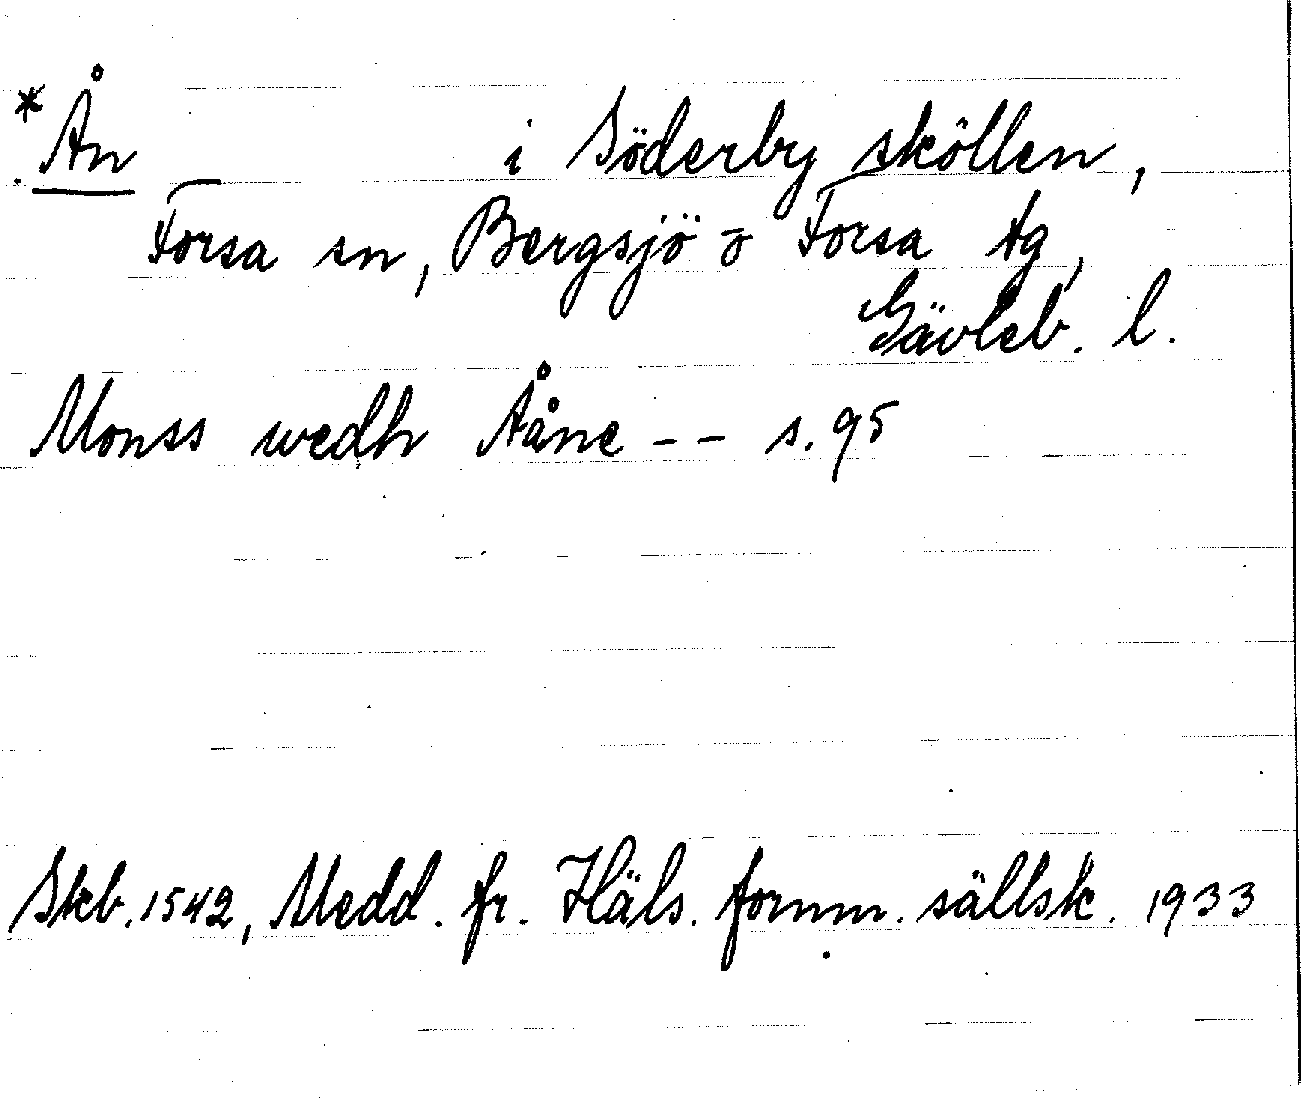 *Ån i Söderby sköllen,
Forsa sn, Bergsjö o Forsa tg,
Gävleb. l.
Monss wedh Ååne -- s. 95
Skb. 1542, Medd. fr. Häls. fornm. sällsk. 1933